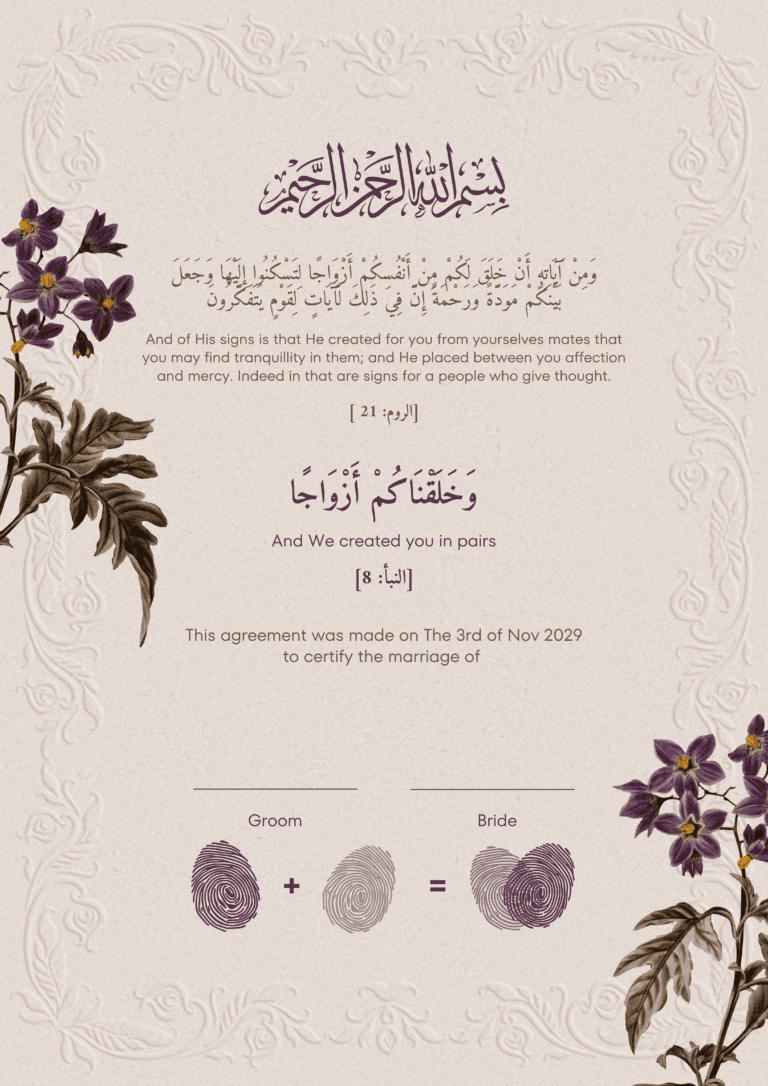 بِسْمِ اللهِ الرَّحْمٰنِ الرَّحِيْمِ
وَمِنْ آيَاتِهِ أَنْ خَلَقَ لَكُمْ مِنْ أَنْفُسِكُمْ أَزْوَاجًا لِتَسْكُنُوا إِلَيْهَا وَجَعَلَ
بَيْنَكُمْ مَوَدَّةً وَرَحْمَةً إِنَّ فِي ذَلِكَ لَآيَاتٍ لِقَوْمٍ يَتَفَكَّرُونَ
And of His signs is that He created for you from yourselves mates that
you may find tranquillity in them; and He placed between you affection
and mercy. Indeed in that are signs for a people who give thought.
[الروم: 21 ]
وَخَلَقْنَاكُمْ أَزْوَاجًا
And We created you in pairs
[النبأ: 8]
This agreement was made on The 3rd of Nov 2029
to certify the marriage of
Groom Bride
+ =